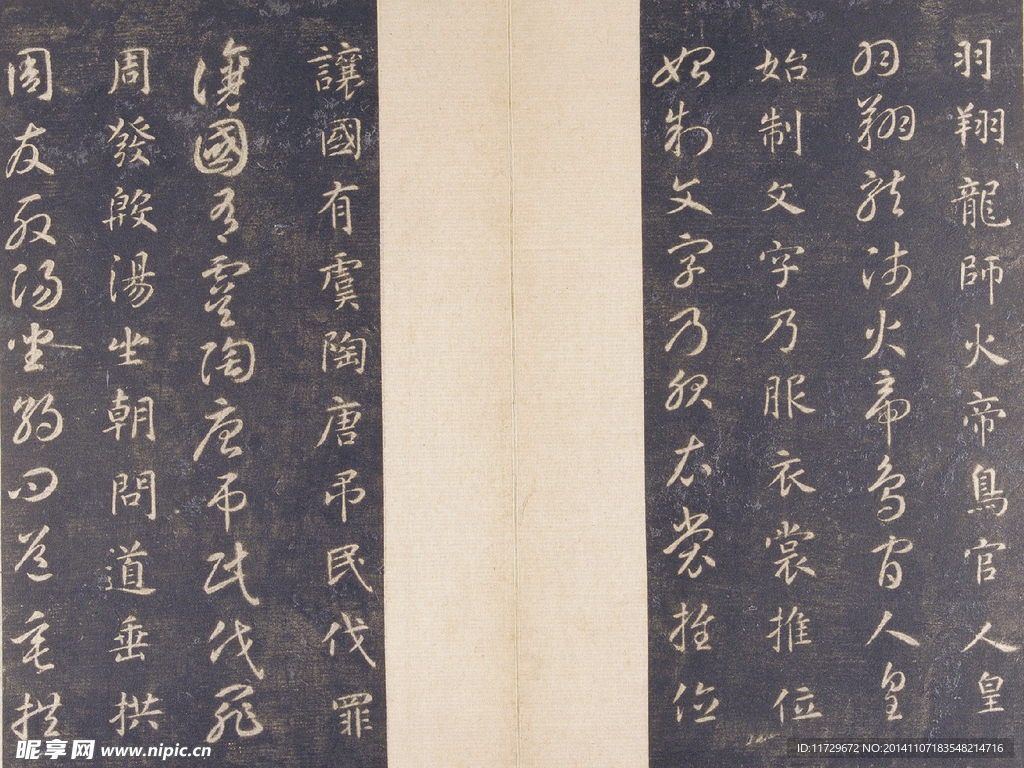 羽翔龍師火帝鳥官人皇
羽翔龍師火帝鳥官人皇
始制文字乃服衣裳推位
始制文字乃服衣裳推位
讓國有虞陶唐吊民伐罪
讓國有虞陶唐吊民伐罪
周發殷湯坐朝問道垂拱
周發殷湯坐朝問道垂拱
昵享网 www.nipic.cn
ID:11729672 NO:20141107183548214716